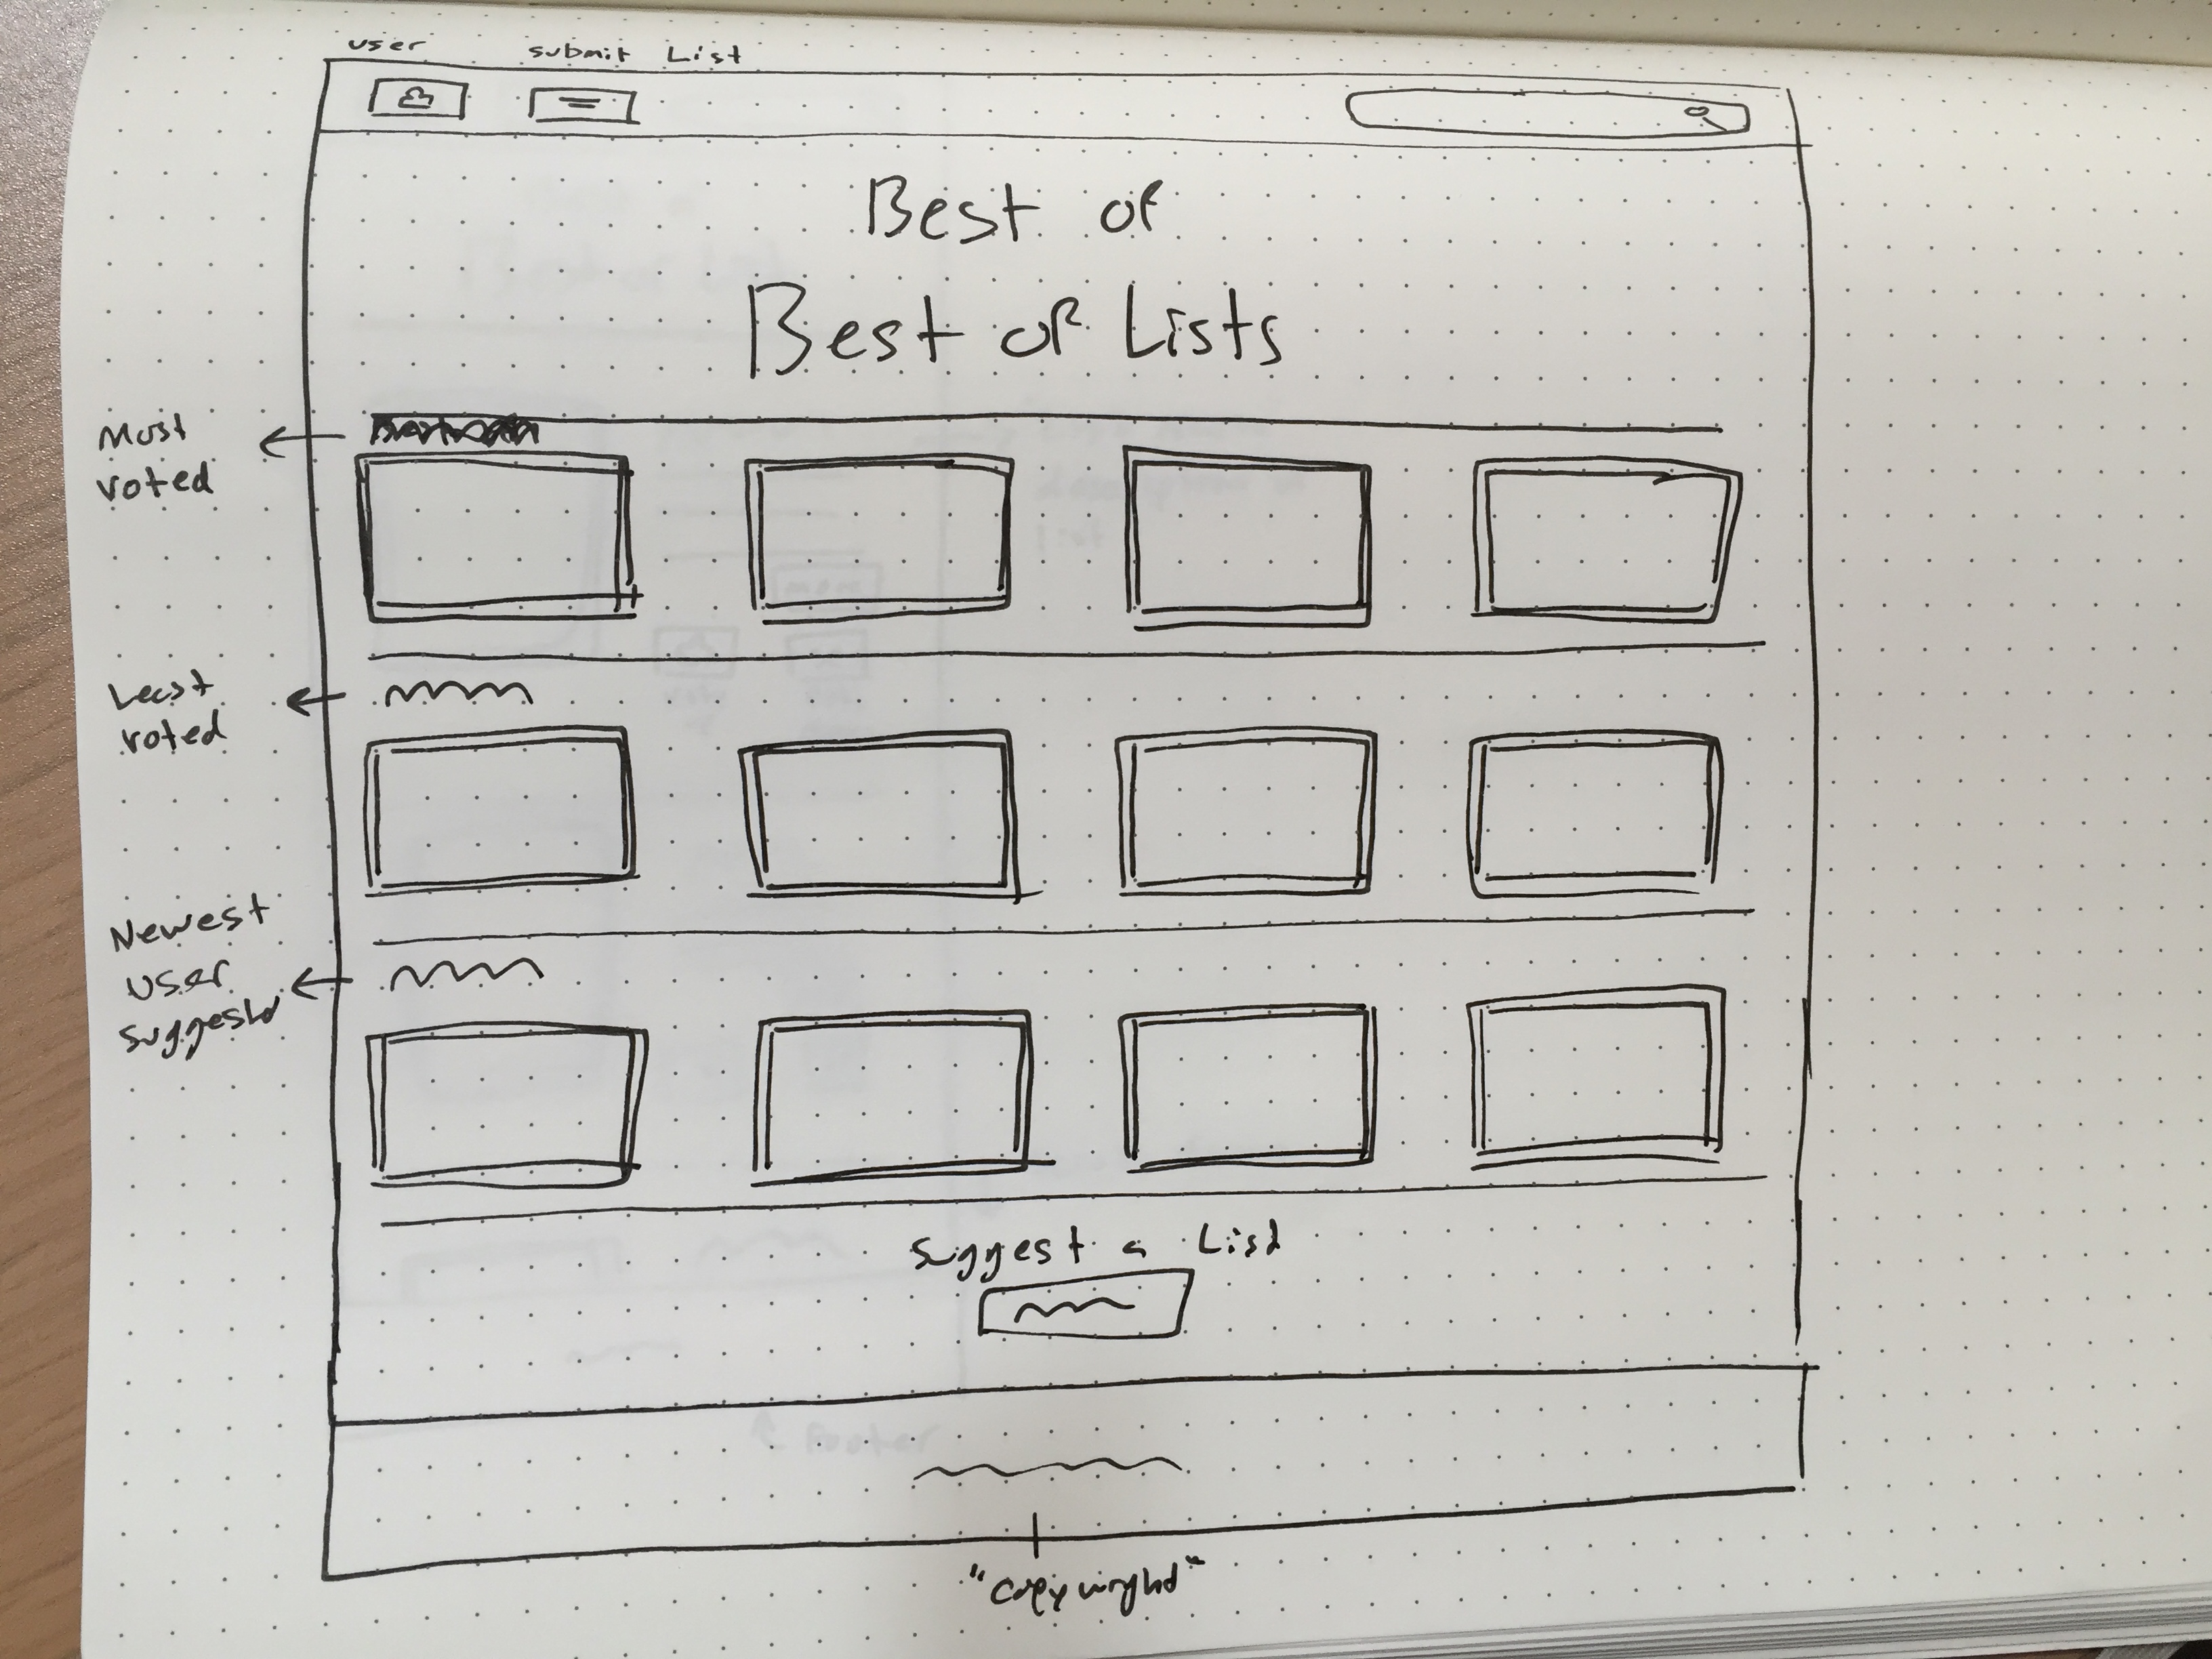 user
submit List
Best of
Best of Lists
Most
voted
Least
voted
Newest
user
suggested
suggest a List
"copywright"